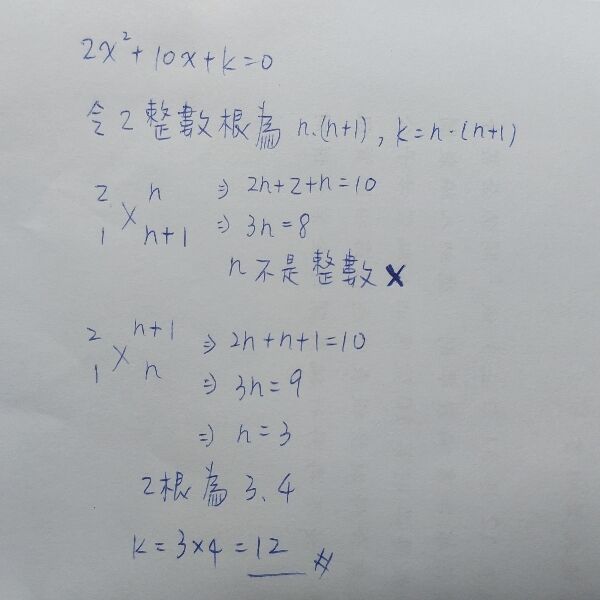 2x²+10x+k=0
令2整數根為 n.(n+1), k=n·(n+1)
2 n ⇒ 2n+2+n=10
1 × n+1 ⇒ 3n=8
n不是整數 ×
2 n+1 ⇒ 2n+n+1=10
1 × n ⇒ 3n=9
⇒ n=3
2根為 3、4
k=3×4=12 #